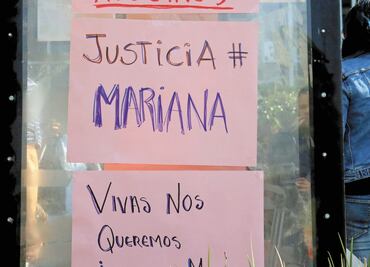 JUSTICIA #
MARIANA
VIVAS NOS
QUEREMOS